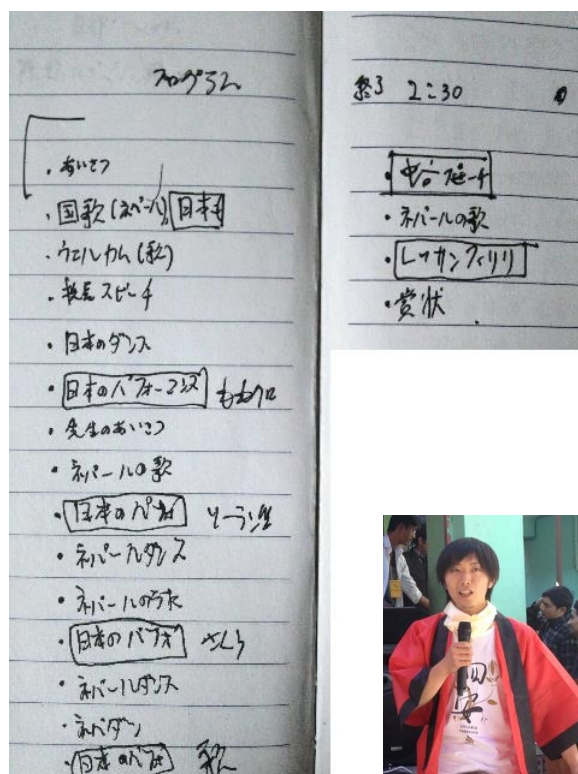 プログラム
・あいさつ
・国歌(ネパール)、日本も
・ウエルカム(歌)
・校長スピーチ
・日本のダンス
・日本のパフォーマンス ももクロ
・先生のあいさつ
・ネパールの歌
・日本のパフォ ソーラン節
・ネパールダンス
・ネパールのうた
・日本のパフォ さくら
・ネパールダンス
・ネパダン
・日本のパフォ 歌
終了 2:30
・中谷スピーチ
・ネパールの歌
・レッサンフィリリ
・賞状